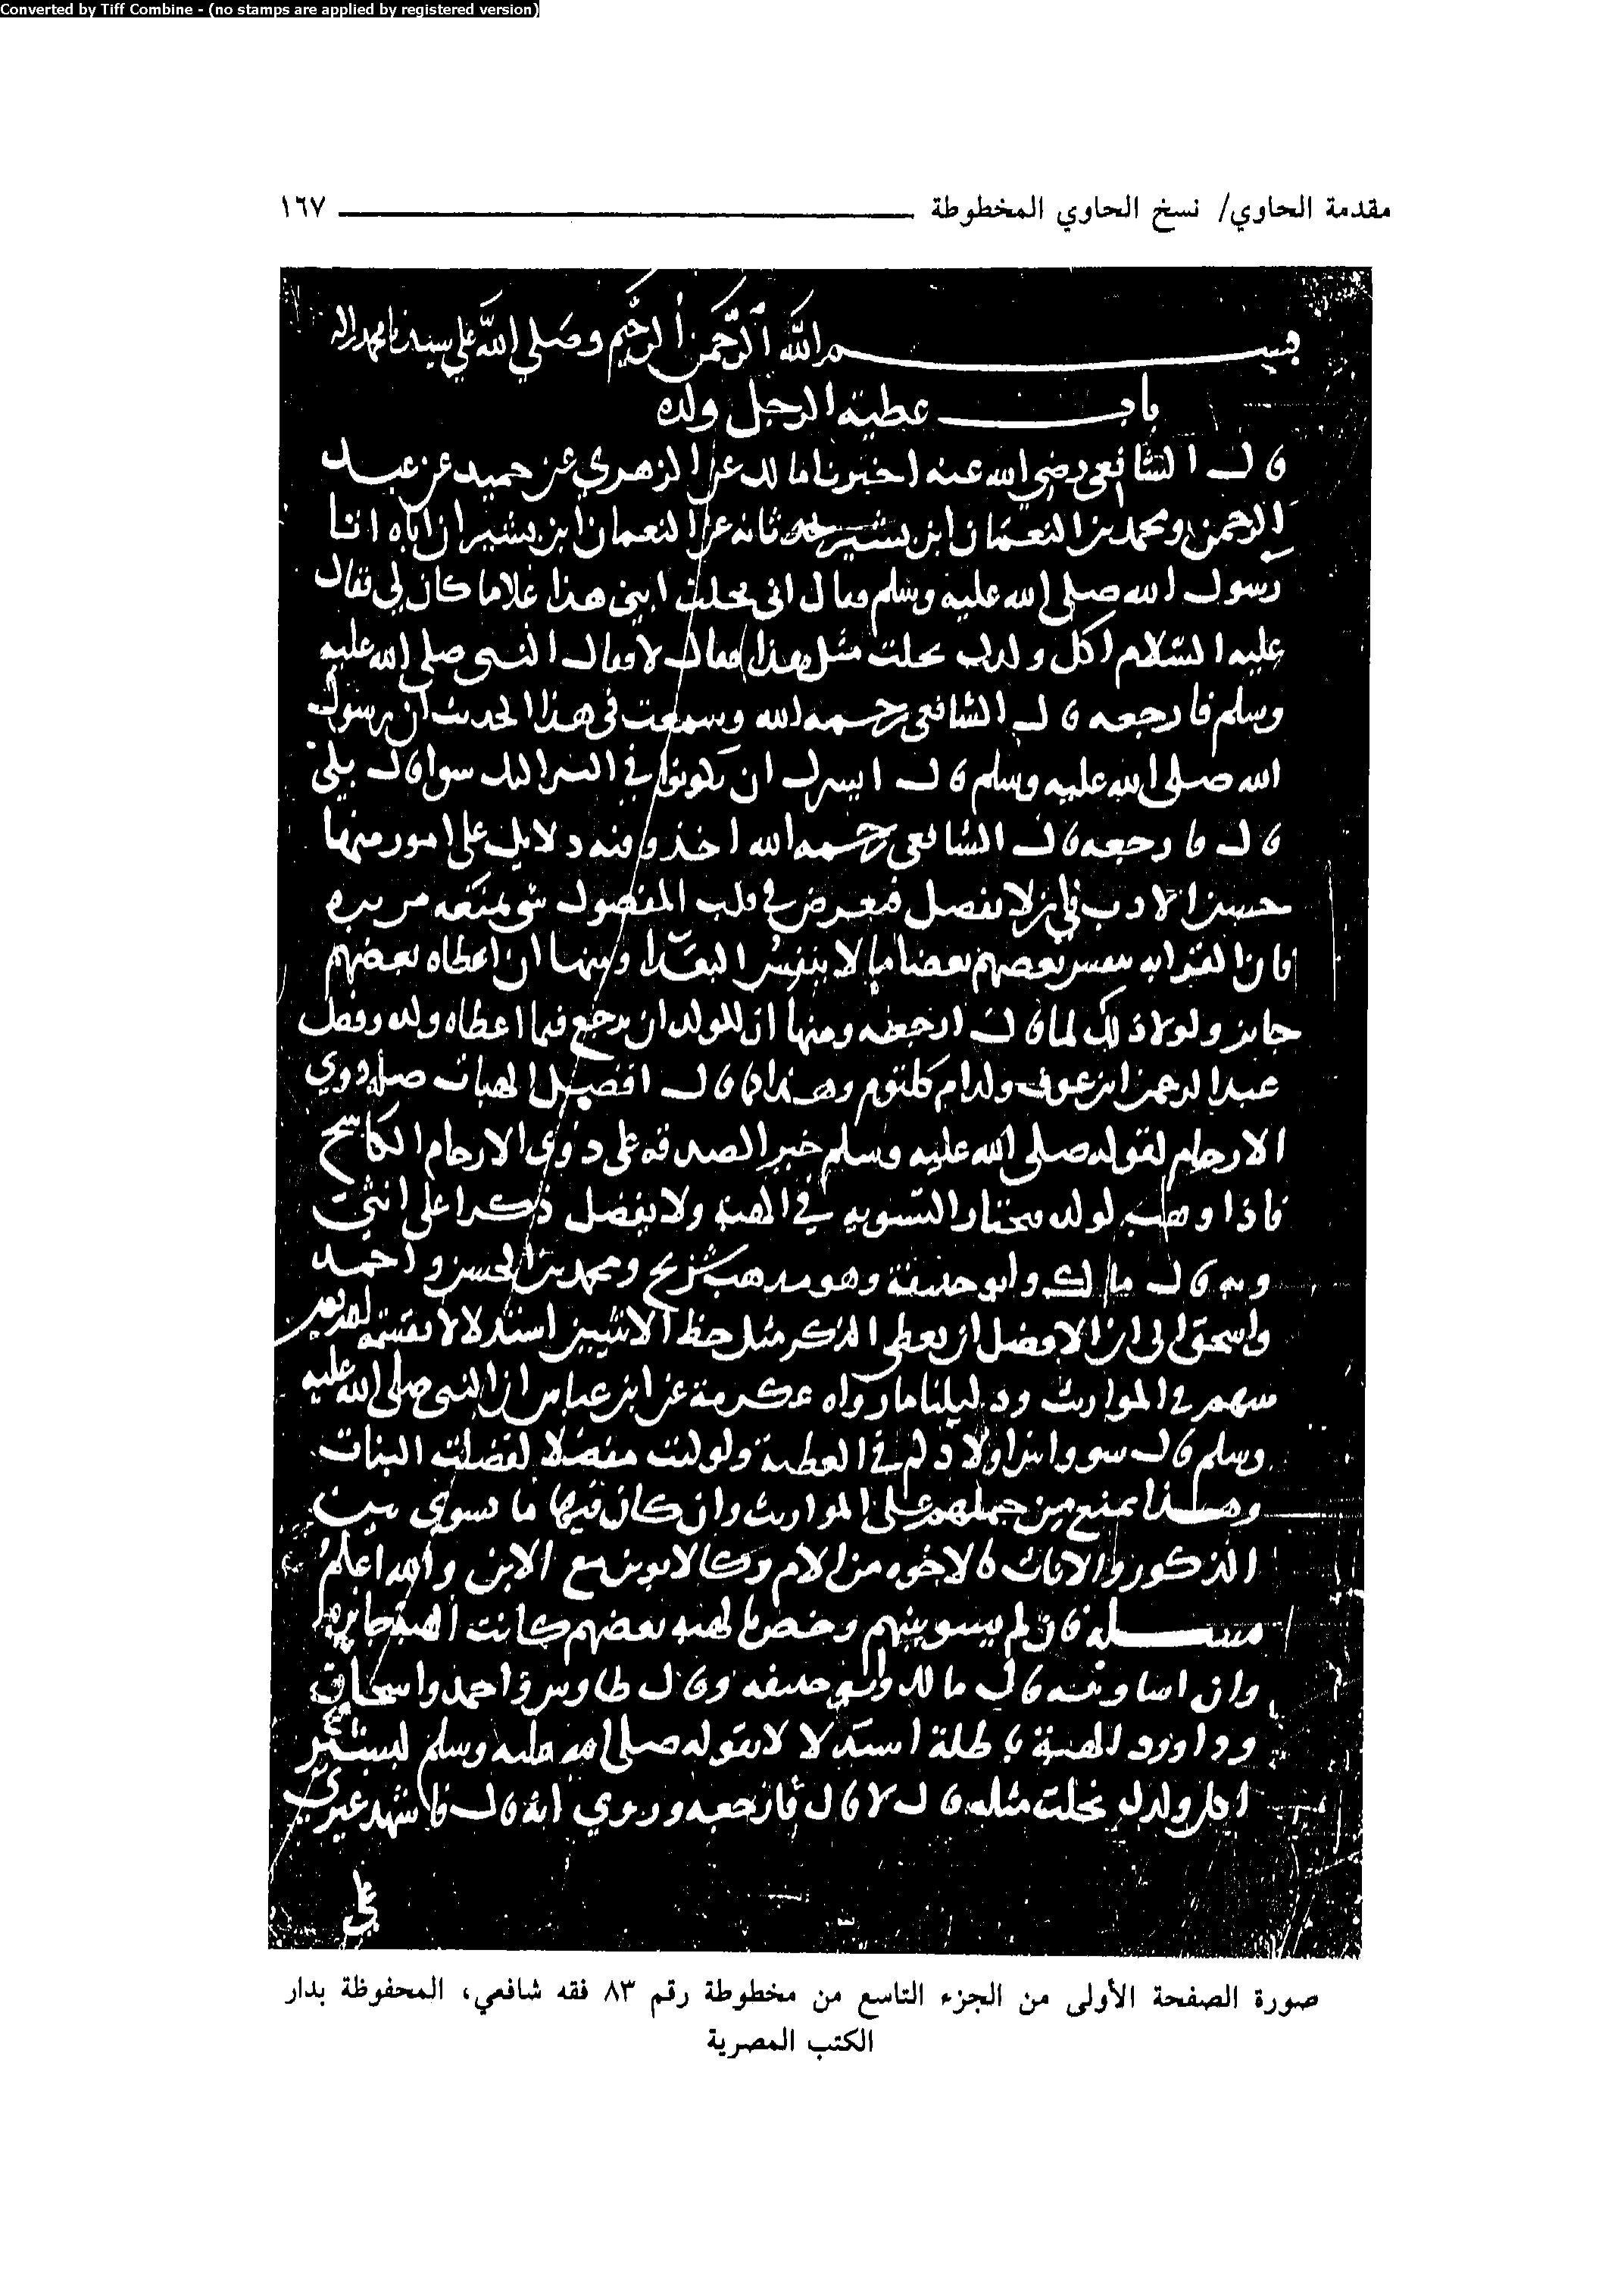 Converted by Tiff Combine - (no stamps are applied by registered version)
مقدمة الحاوي/ نسخ الحاوي المخطوطة ١٦٧
بسم الله الرحمن الرحيم وصلى الله على سيدنا محمد واله
باب عطية الرجل ولده
قال الشافعي رضي الله عنه اخبرنا مالك عن الزهري عن حميد عن عبد
الرحمن ومحمد بن النعمان ابن بشير يحدثانه عن النعمان ابن بشير ان اباه اتا
رسول الله صلى الله عليه وسلم فقال اني نحلت ابني هذا غلاما كان لي فقال
عليه السلام اكل ولدك نحلت مثل هذا فقال لا فقال النبي صلى الله عليه
وسلم فارجعه قال الشافعي رحمه الله وسمعت في هذا الحديث ان رسول
الله صلى الله عليه وسلم قال ايسرك ان يكونوا في البر اليك سوا قال بلى
قال فارجعه قال الشافعي رحمه الله اخذ وفيه دلايل على امور منها
حسن الادب في ان لا يفضل فيعرض في قلب المفضول شي يمنعه من بره
فان القرابه ينفس بعضهم بعضا ما لا ينفس البعدا ومنها ان اعطاه بعضهم
جايز ولولا ذلك لما قال ارجعه ومنها ان للوالد ان يرجع فيما اعطاه ولده وفضل
عبد الرحمن ابن عوف ولد ام كلثوم وهذا كما قال افضل الهبات صلة ذوي
الارحام لقوله صلى الله عليه وسلم خير الصدقه على ذوي الارحام الكاشح
فاذا وهب لولده فيختار التسويه في الهبة ولا يفضل ذكرا على انثى
وبه قال مالك وابو حنيفة وهو مذهب شريح ومحمد بن الحسن واحمد
واسحق الى ان الافضل ان يعطي الذكر مثل حظ الانثيين استدلالا بقسمة الله تعالى
سهم في المواريث ودليلنا ما رواه عكرمة عن ابن عباس ان النبي صلى الله عليه
وسلم قال سووا بين اولادكم في العطية ولو كنت مفضلا لفضلت البنات
وهذا يمنع من حملهم على المواريث وان كان فيها ما يسوي بين
الذكور والاناث كالاخوه من الام وكالابوين مع الابن والله اعلم
مسلة فان لم يسو بينهم وخص بالهبه بعضهم كانت الهبة جايزة
وان اسا وبه قال مالك وابو حنيفه وقال طاوس واحمد واسحاق
وداوود الهبة باطلة استدلالا لقوله صلى الله عليه وسلم لبشير
اكل ولدك نحلت مثله قال لا قال فارجعه وروي انه قال فاشهد غيري
على
صورة الصفحة الأولى من الجزء التاسع من مخطوطة رقم ٨٣ فقه شافعي، المحفوظة بدار
الكتب المصرية